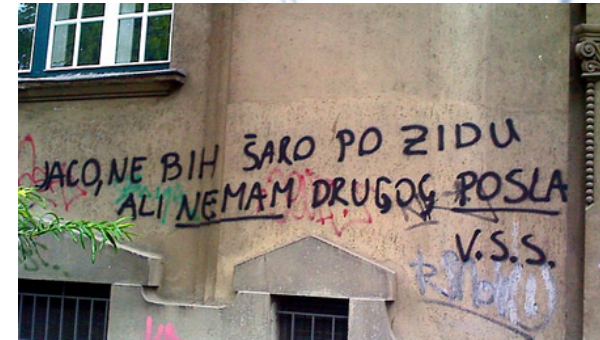 JACO, NE BIH ŠARO PO ZIDU
ALI NEMAM DRUGOG POSLA
V.S.S.